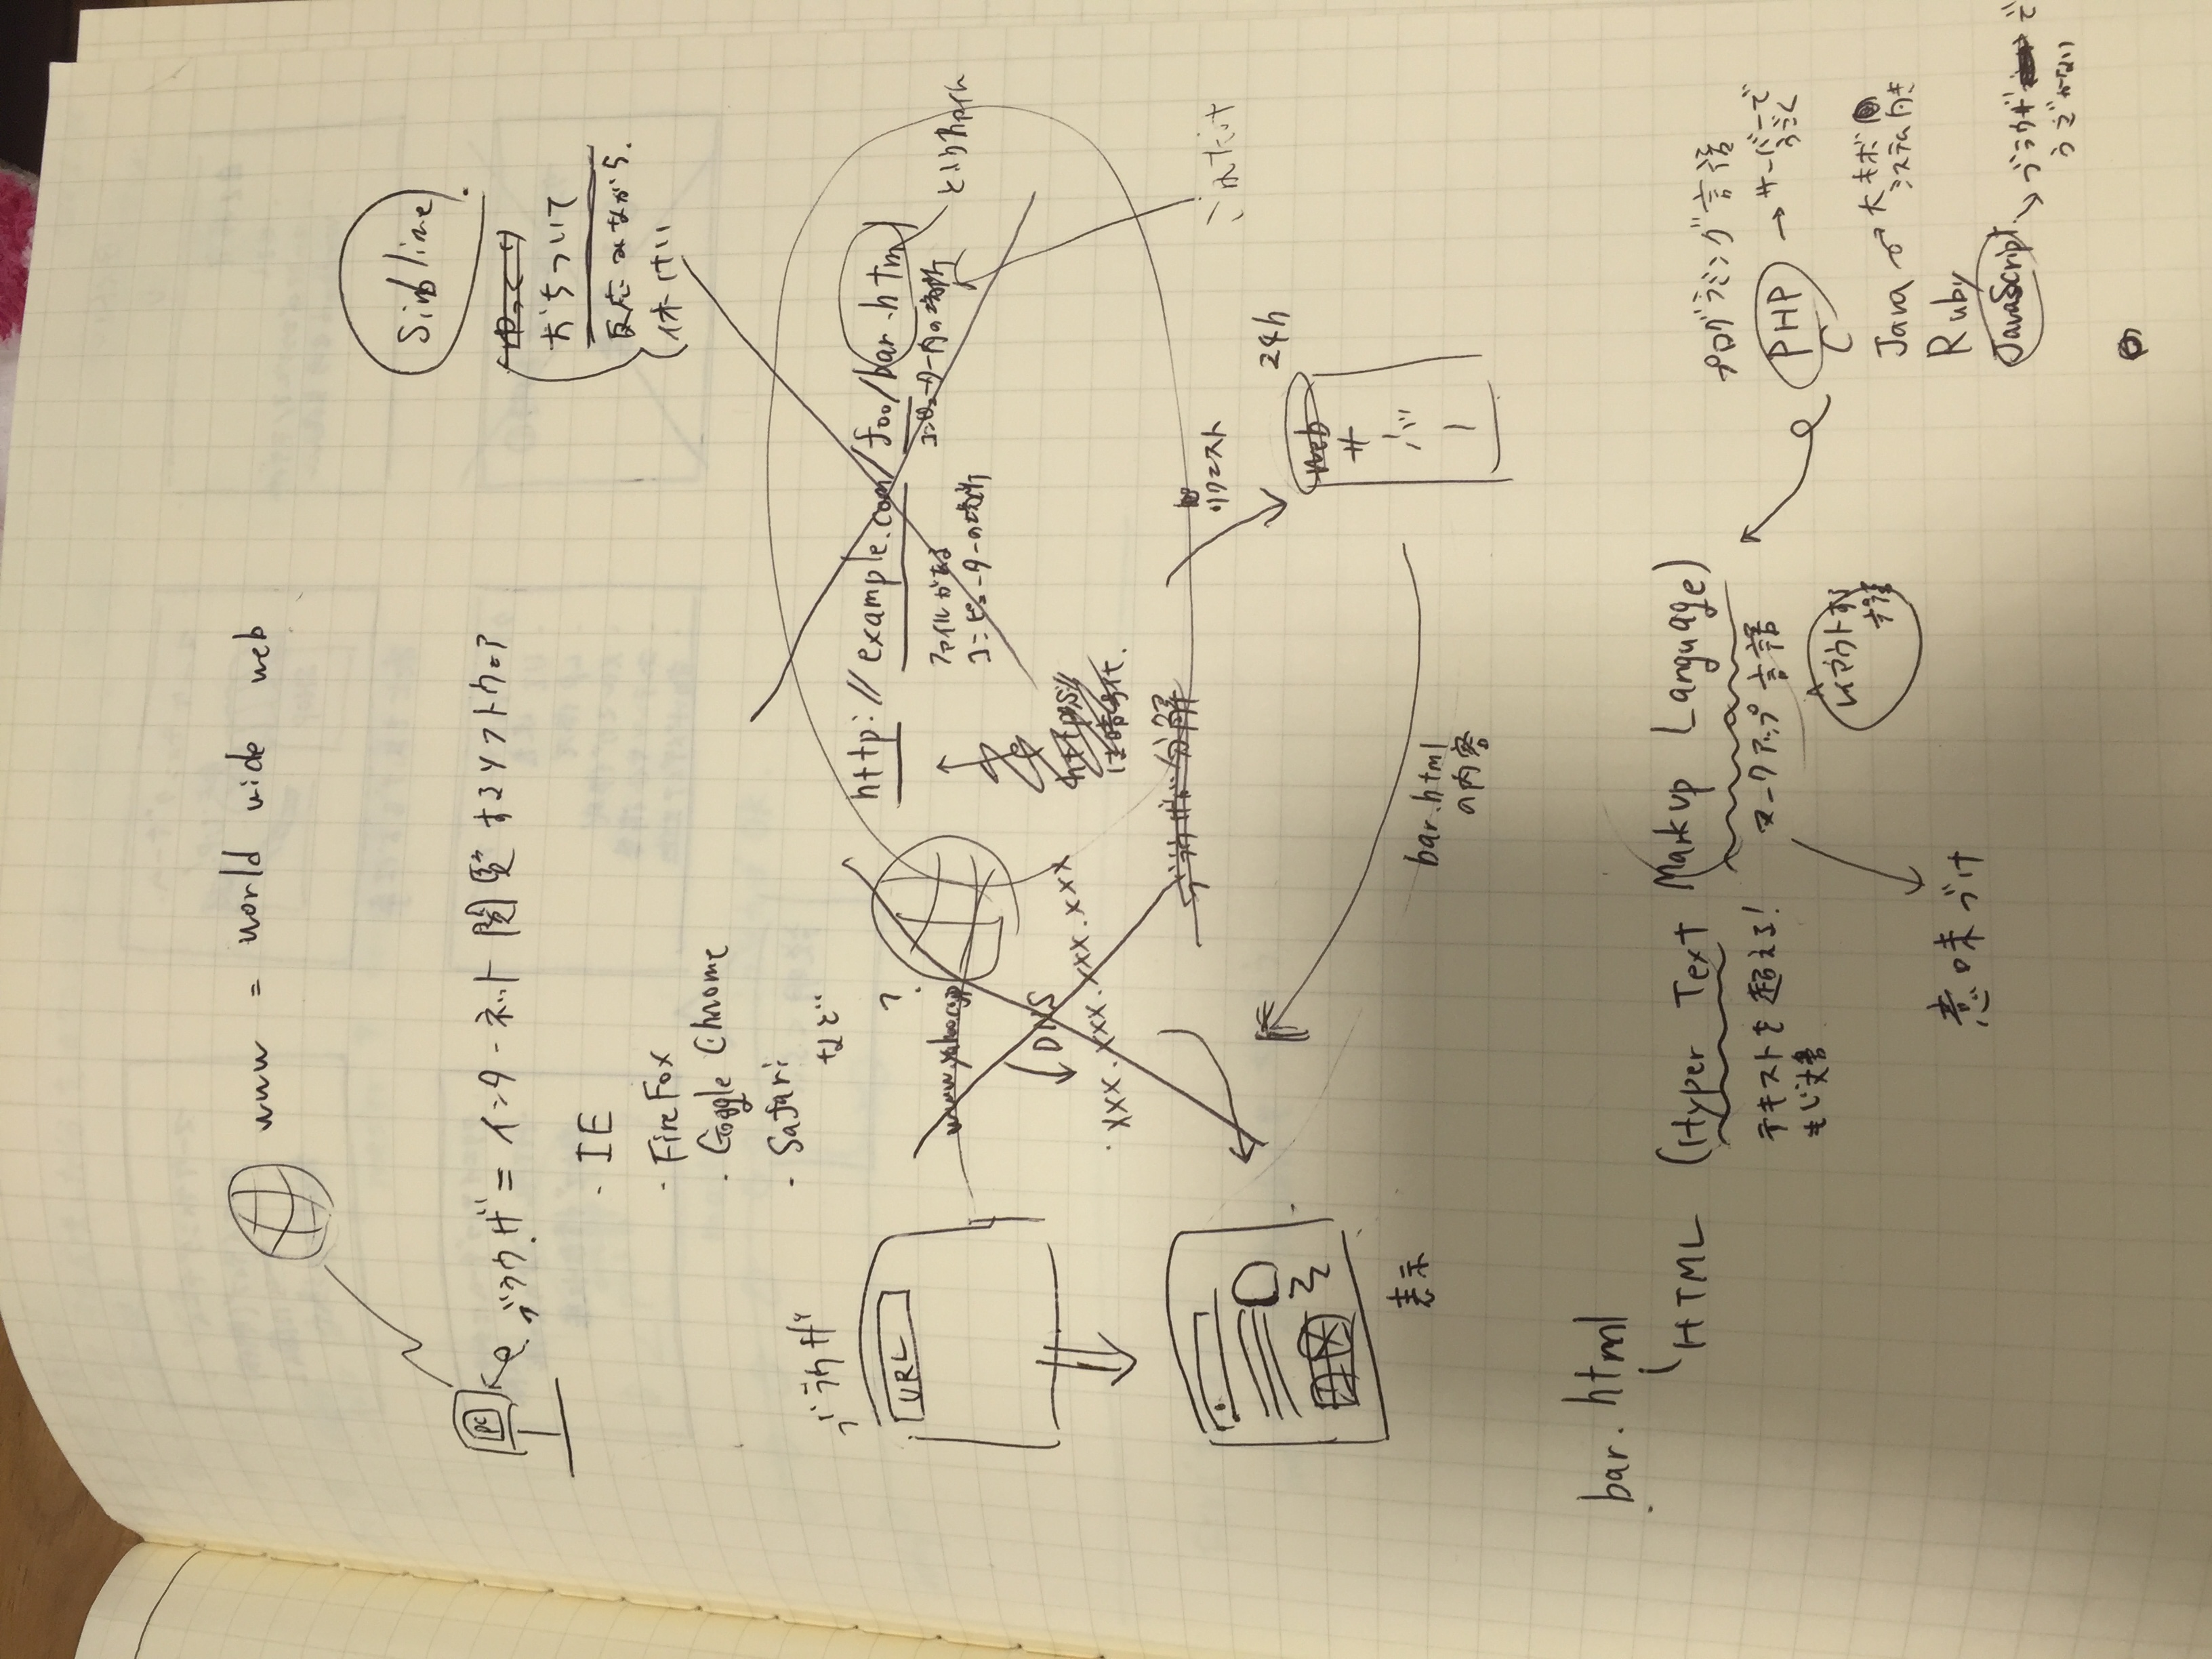 www = world wide web
PC
ブラウザ = インターネット閲覧するソフトウェア
・IE
・FireFox
・Google Chrome
・Safari
など
Sinblime
ゆっくり
おちついて
反応みながら.
休けい
ブラウザ
URL
?
www.yahoo.co.jp
DNS
xxx.xxx.xxx.xxx
http://example.com/foo/bar.html
ファイルがある
コンピューターの場所
コンピューター内の場所
というファイル
https://
は暗号化.
ブラウザが分解
リクエスト
これだけ
24h
web
サーバー
bar.html
の内容
表示
bar.html
HTML (Hyper Text Markup Language)
テキストを超える!
もじ文書
マークアップ言語
レイアウトする
言語
意味づけ
プログラミング言語
PHP → サーバーで
うごく
C
Java → 大キボ
システム向き
Ruby
JavaScript → ブラウザで
うごかない